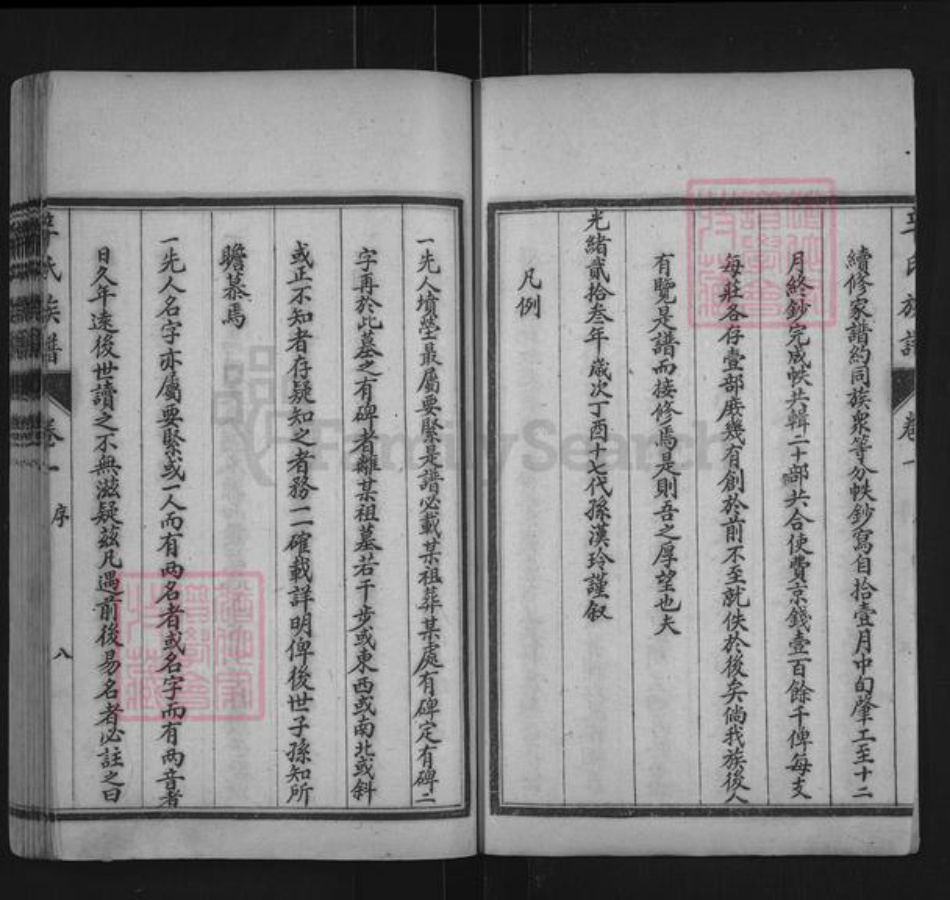 續修家譜約同族衆等分帙鈔寫自拾壹月中旬肇工至十二
月終鈔完成帙共輯二十部共合使費京錢壹百餘千俾每支
每莊各存壹部庶幾有創於前不至就佚於後矣倘我族後人
有覽是譜而接修焉是則吾之厚望也夫
光緒貳拾叁年歲次丁酉十七代孫漢玲謹叙
凡例
一先人墳塋最屬要緊是譜必載某祖葬某處有碑定有碑二
字再於此墓之有碑者離某祖墓若干步或東西或南北或斜
或正不知者存疑知之者務一一確載詳明俾後世子孫知所
瞻慕焉
一先人名字亦屬要緊或一人而有兩名者或名字而有兩音者
日久年遠後世讀之不無滋疑茲凡遇前後易名者必註之曰
氏族譜 卷一 序 八
FamilySearch